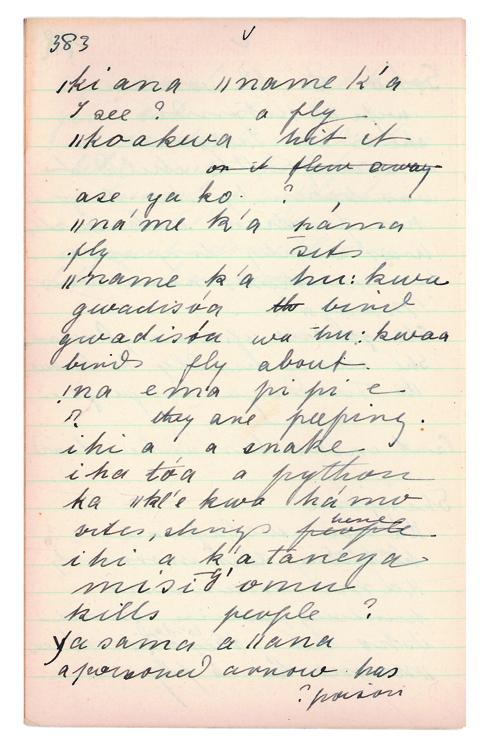 383
ıki ana ıı name k'a
I see? a fly
ıı koakwa hit it
or it flew away
ase ya ko. ?
ıı náme k'a háma
fly sits
ıı name k'a hu: kwa
gwadisóa the bird
gwadisóa wa hu: kwaa
birds fly about.
!na e ma pi pi e
? they are peeping.
i hi a a snake
i ha tóa a python
ka ıı kl'e kwa hámo
bites, stings people
i hi a k'a taneya
misi g' omu
kills people ?
ya sama a ıı ana
a poisoned arrow has
? poison